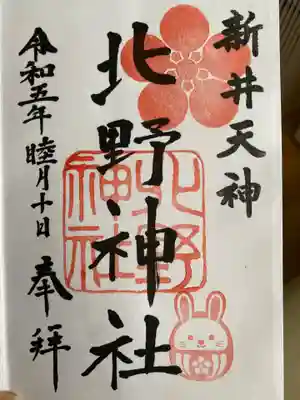 新井天神
北野神社
奉拝
令和五年睦月十日
北野
神社